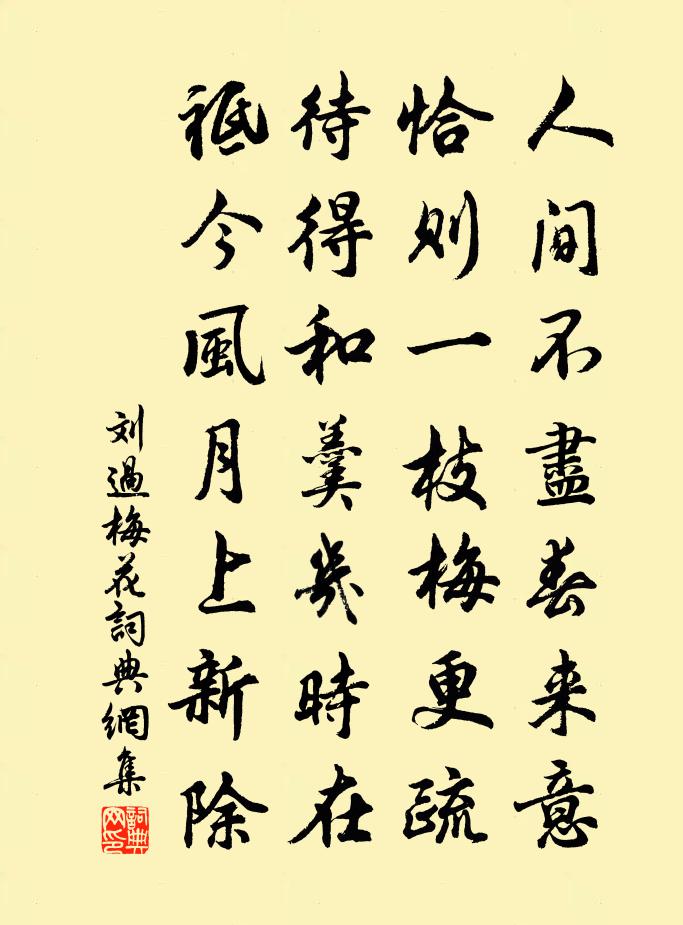 人間不盡春来意
恰则一枝梅更疏
待得和羹幾時在
祗今風月上新除
刘過梅花詞典網集
詞典网印